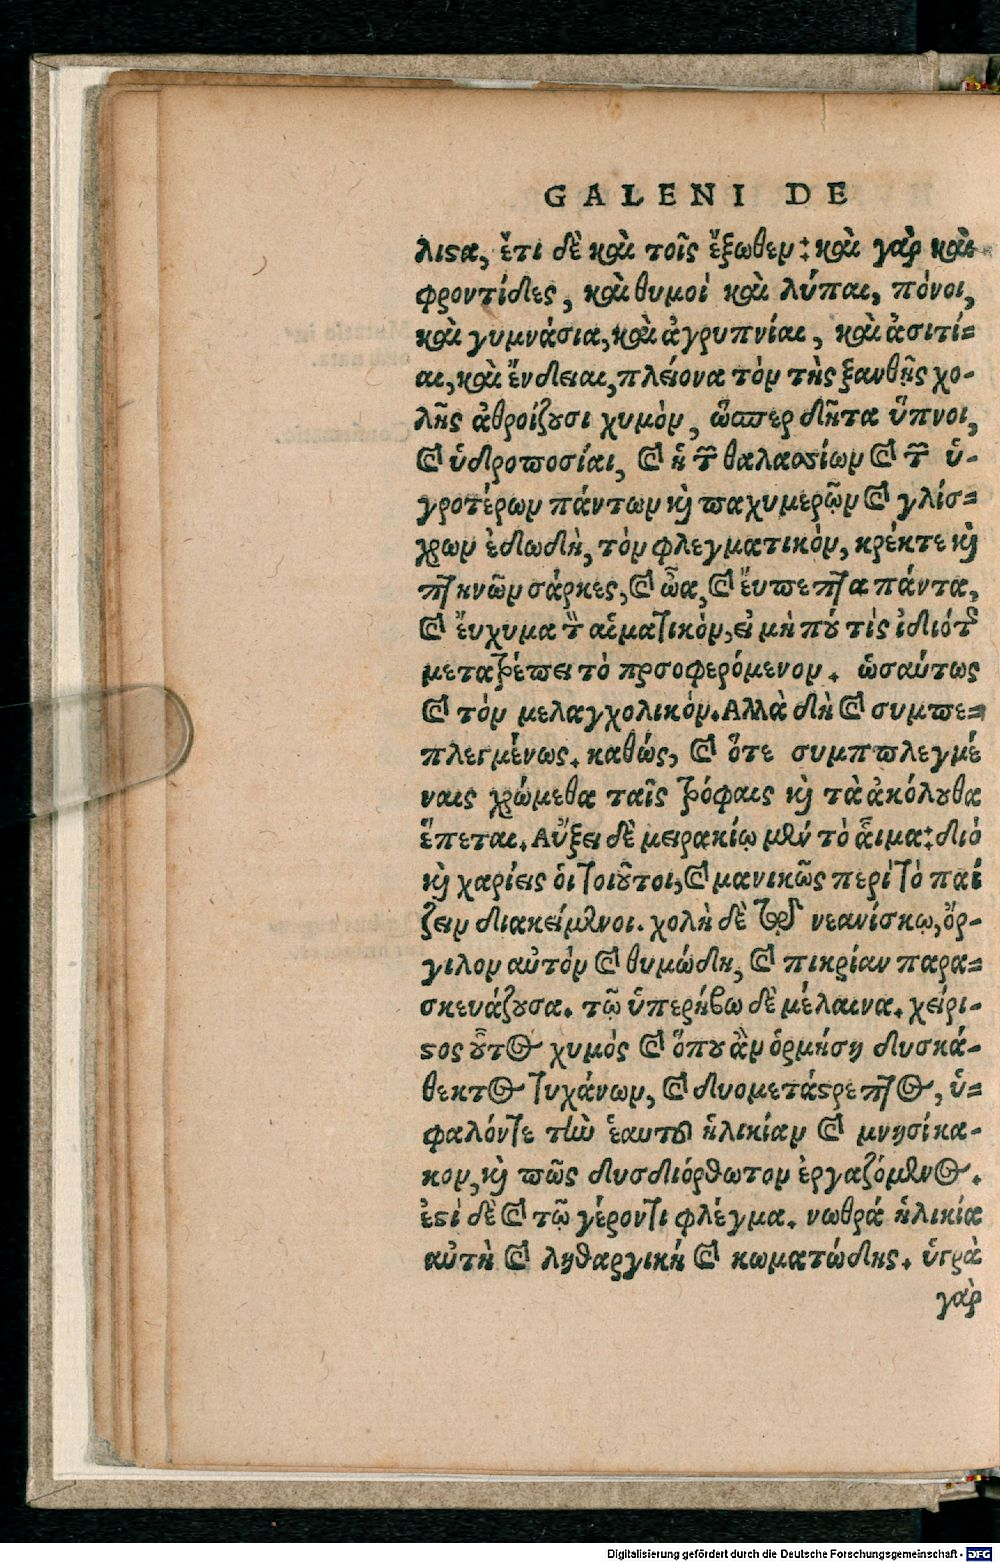 GALENI DE
λιϛα, ἔτι δὲ καὶ τοῖς ἔξωθεν: καὶ γὰρ καὶ
φροντίδες, καὶ θυμοὶ καὶ λύπαι, πόνοι,
καὶ γυμνάσια, καὶ ἀγρυπνίαι, καὶ ἀσιτί=
αι, καὶ ἔνδειαι, πλείονα τὸν τῆς ξανθῆς χο-
λῆς ἀθροίζουσι χυμὸν, ὥσπερ δῆτα ὕπνοι,
καὶ ὑδροποσίαι, καὶ ἡ τῶν θαλασσίων καὶ τῶν ὑ-
γροτέρων πάντων καὶ παχυμερῶν καὶ γλίσ=
χρων ἐδωδὴ, τὸν φλεγματικὸν, κρέκτε καὶ
πτηνῶν σάρκες, καὶ ὦα, καὶ ἔυπεπτα πάντα,
καὶ ἔυχυμα τὸν αἱματικὸν, εἰ μὴ πού τὶς ἰδιότης
μετατρέπει τὸ προσφερόμενον. ὡσαύτως
καὶ τὸν μελαγχολικόν. Αλλὰ δὴ καὶ συμπε=
πλεγμένως. καθώς, καὶ ὅτε συμππλεγμέ
ναις χρώμεθα ταῖς τρόφαις καὶ τὰ ἀκόλουθα
ἕπεται. Αὔξει δὲ μειρακίῳ μὲν τὸ ἇιμα: διὸ
καὶ χαρίεις ὁι τοιοῦτοι, καὶ μανικῶς περὶ τὸ παί
ζειν διακείμενοι. χολὴ δὲ τῷ νεανίσκῳ, ὄρ-
γιλον αὐτὸν καὶ θυμώδη, καὶ πικρίαν παρα=
σκευάζουσα. τῷ ὑπερήβῳ δὲ μέλαινα. χείρι-
ϛος οὗτος χυμός καὶ ὅπου ἂν ὁρμήσῃ δυσκά-
θεκτος τυχάνων, καὶ δυσμετάϛρεπτος, ὑ=
φαλόντε τὴν ἑαυτοῦ ἡλικίαν καὶ μνησίκα-
κον, καὶ πῶς δυσδιόρθωτον ἐργαζόμενος.
ἐϛὶ δὲ καὶ τῷ γέροντι φλέγμα. νωθρά ἡλικία
αὐτὴ καὶ ληθαργική καὶ κωματώδης. ὑγρὰ
γὰρ
Digitalisierung gefördert durch die Deutsche Forschungsgemeinschaft - DFG